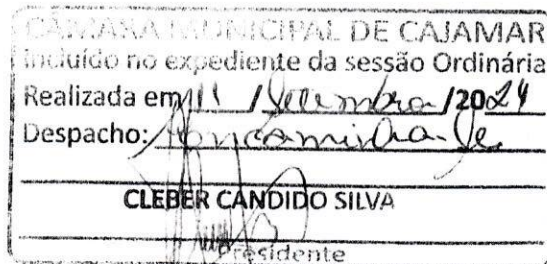 CÂMARA MUNICIPAL DE CAJAMAR
Incluído no expediente da sessão Ordinária
Realizada em 11 / Setembro /2024
Despacho: Encaminha-se
CLEBER CANDIDO SILVA
Presidente